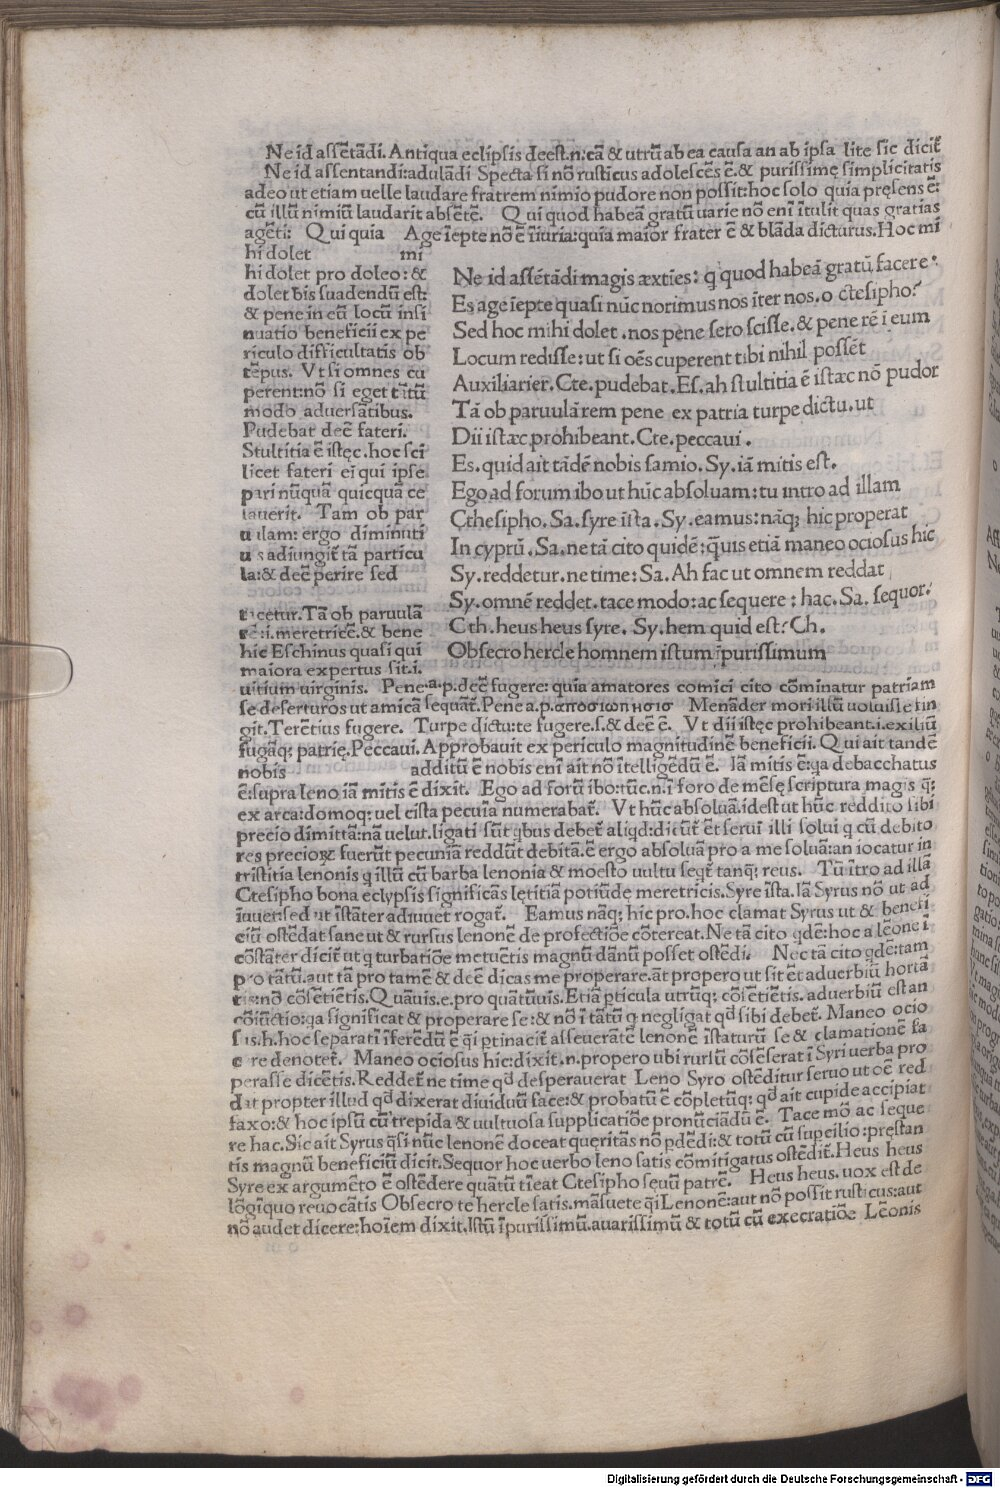 Ne id assẽtãdi. Antiqua eclipsis deest.n:cã & utrũ ab ea causa an ab ipsa lite sic dicit̃
Ne id assentandi:adulãdi Specta si nõ rusticus adolescẽs ẽ.& purissimę simplicitatis
adeo ut etiam uelle laudare fratrem nimio pudore non possit:hoc solo quia pręsens ẽ:
cũ illũ nimiũ laudarit absẽtẽ. Qui quod habeã gratũ uarie nõ eni ĩtulit quas gratias
agẽti: Qui quia Age ĩepte nõ ẽ ĩiuria:quia maior frater ẽ & blãda dicturus.Hoc mi
hi dolet mi
hi dolet pro doleo:&
dolet bis suadendũ est:
& pene in eũ locũ insi
nuatio beneficii ex pe
riculo difficultatis ob
tẽpus. Vt si omnes cu
perent:nõ si eget tãtũ
modo aduersãtibus.
Pudebat deẽ fateri.
Stultitia ẽ istęc.hoc sci
licet fateri ei qui ipse
pari nũquã quicquã ce
lauerit. Tam ob par
uulam: ergo diminuti
uus adiungit̃ tã particu
la:& deẽ perire sed
Ne id assẽtãdi magis æxtĩes: q̃ quod habeã gratũ facere:
Es age ĩepte quasi nũc norimus nos ĩter nos.o ctesipho?
Sed hoc mihi dolet .nos pene sero scisse.& pene rẽ ĩ eum
Locum redisse:ut si oẽs cuperent tibi nihil possẽt
Auxiliarier.Cte.pudebat.Es.ah stultitia ẽ istæc nõ pudor
Tã ob paruulã rem pene ex patria turpe dictu.ut
Dii istæc prohibeant.Cte.peccaui.
Es.quid ait tãdẽ nobis samio.Sy.iã mitis est.
Ego ad forum ibo ut hũc absoluam:tu intro ad illam
Cthesipho.Sa.syre ĩsta.Sy.eamus:nãq; hic properat
In cyprũ.Sa.ne tã cito quidẽ:q̃uis etiã maneo ociosus hic
Sy.reddetur.ne time:Sa.Ah fac ut omnem reddat
Sy.omnẽ reddet.tace modo:ac sequere: hac.Sa. sequor.
Cth.heus heus syre. Sy.hem quid est? Ch.
Obsecro hercle homnem istum ĩpurissimum
dicetur.Tã ob paruulã
rẽ:i.meretricẽ.& bene
hic Eschinus quasi qui
maiora expertus sit.i.
uitium uirginis. Pene.a.p.deẽ fugere: quia amatores comici cito cõminatur patriam
se deserturos ut amicã sequãt̃.Pene a.p.αποσιωπησισ Menãder mori illũ uoluisse fin
git.Terẽtius fugere. Turpe dictu:te fugere.s.& deẽ ẽ. Vt dii istęc prohibeant.i.exiliũ
fugãq; patrię.Peccaui.Approbauit ex periculo magnitudinẽ beneficii.Qui ait tandẽ
nobis additũ ẽ nobis eni ait nõ ĩtelligẽdũ ẽ. Iã mitis ẽ:qa debacchatus
ẽ:supra leno.iã mitis ẽ dixit. Ego ad forũ ibo:tũc.n:ĩ foro de mẽsę scriptura magis q̃:
ex arca:domoq; uel cista pecuĩa numerabat̃. Vt hũc absoluã.idest ut hũc reddito sibi
precio dimittã:nã uelut.ligati sũt qbus debet̃ aliqd:dicũt̃ ẽt serui illi solui q cũ debito
res preciorꝝ fuerũt pecuniã reddũt debitã.ẽ ergo absoluã pro a me soluã:an iocatur in
tristitia lenonis q illũ cũ barba lenonia & moesto uultu seqt̃ tanq; reus. Tũ ĩtro ad illã
Ctesipho bona eclypsis significãs lętitiã potiũdę meretricis.Syre ĩsta.Iã Syrus nõ ut ad
ĩuuer:sed ut ĩstãter adiuuet rogat̃. Eamus nãq; hic pro.hoc clamat Syrus ut & benefi
ciũ ostẽdat sane ut & rursus lenonẽ de profectiõe cõtereat.Ne tã cito qdẽ:hoc a lẽone ĩ
cõstãter dicit̃ ut q turbatiõne metuẽtis magnũ dãnũ posset ostẽdi. Nec tã cito qdẽ:tam
pro tãtũ.aut tã pro tamẽ & deẽ dicas me properare.ãt propero ut sit ẽt aduerbiũ hortã
tis:nõ cõsẽtiẽtis.Quãuis.e.pro quãtũuis.Etiã pticula utrũq; cõsẽtiẽtis. aduerbiũ est an
cõiũctio:qa significat & properare se:& nõ ĩ tãtũ q negligat qd sibi debet̃. Maneo ocio
sus.h.hoc separatĩ ĩferẽdũ ẽ q̃i ptinacit̃ asseuerãtẽ lenonẽ ĩstaturũ se & clamationẽ fa
cere denotet̃. Maneo ociosus hic:dixit.n.propero ubi rursũ cõsẽserat ĩ Syri uerba pro
perasse dicẽtis.Reddet̃ ne time qd desperauerat Leno Syro ostẽditur seruo ut oẽ red
dat propter illud qd dixerat diuiduũ face:& probatũ ẽ cõpletũq; qd ait cupide accipiat
faxo:& hoc ipsũ cũ trepida & uultuosa supplicatiõe pronũciãdũ ẽ. Tace mõ ac seque
re hac.Sic ait Syrus q̃si nũc lenonẽ doceat queritãs nõ pdẽdi:& totũ cũ supcilio:pręstan
tis magnũ beneficiũ dicit.Sequor hoc uerbo leno satis cõmitigatus ostẽdit̃.Heus heus
Syre ex argumẽto ẽ ostẽdere quãtũ tĩeat Ctesipho sęuũ patrẽ. Heus heus.uox est de
lõgĩquo reuocãtis Obsecro te hercle satis.mãsuete q̃i Lenonẽ:aut nõ possit rusticus:aut
nõ audet dicere:hoĩem dixit.Istũ ĩpurissimũ.auarissimũ & totũ cũ execratiõe Lẽonis
Digitalisierung gefördert durch die Deutsche Forschungsgemeinschaft - DFG